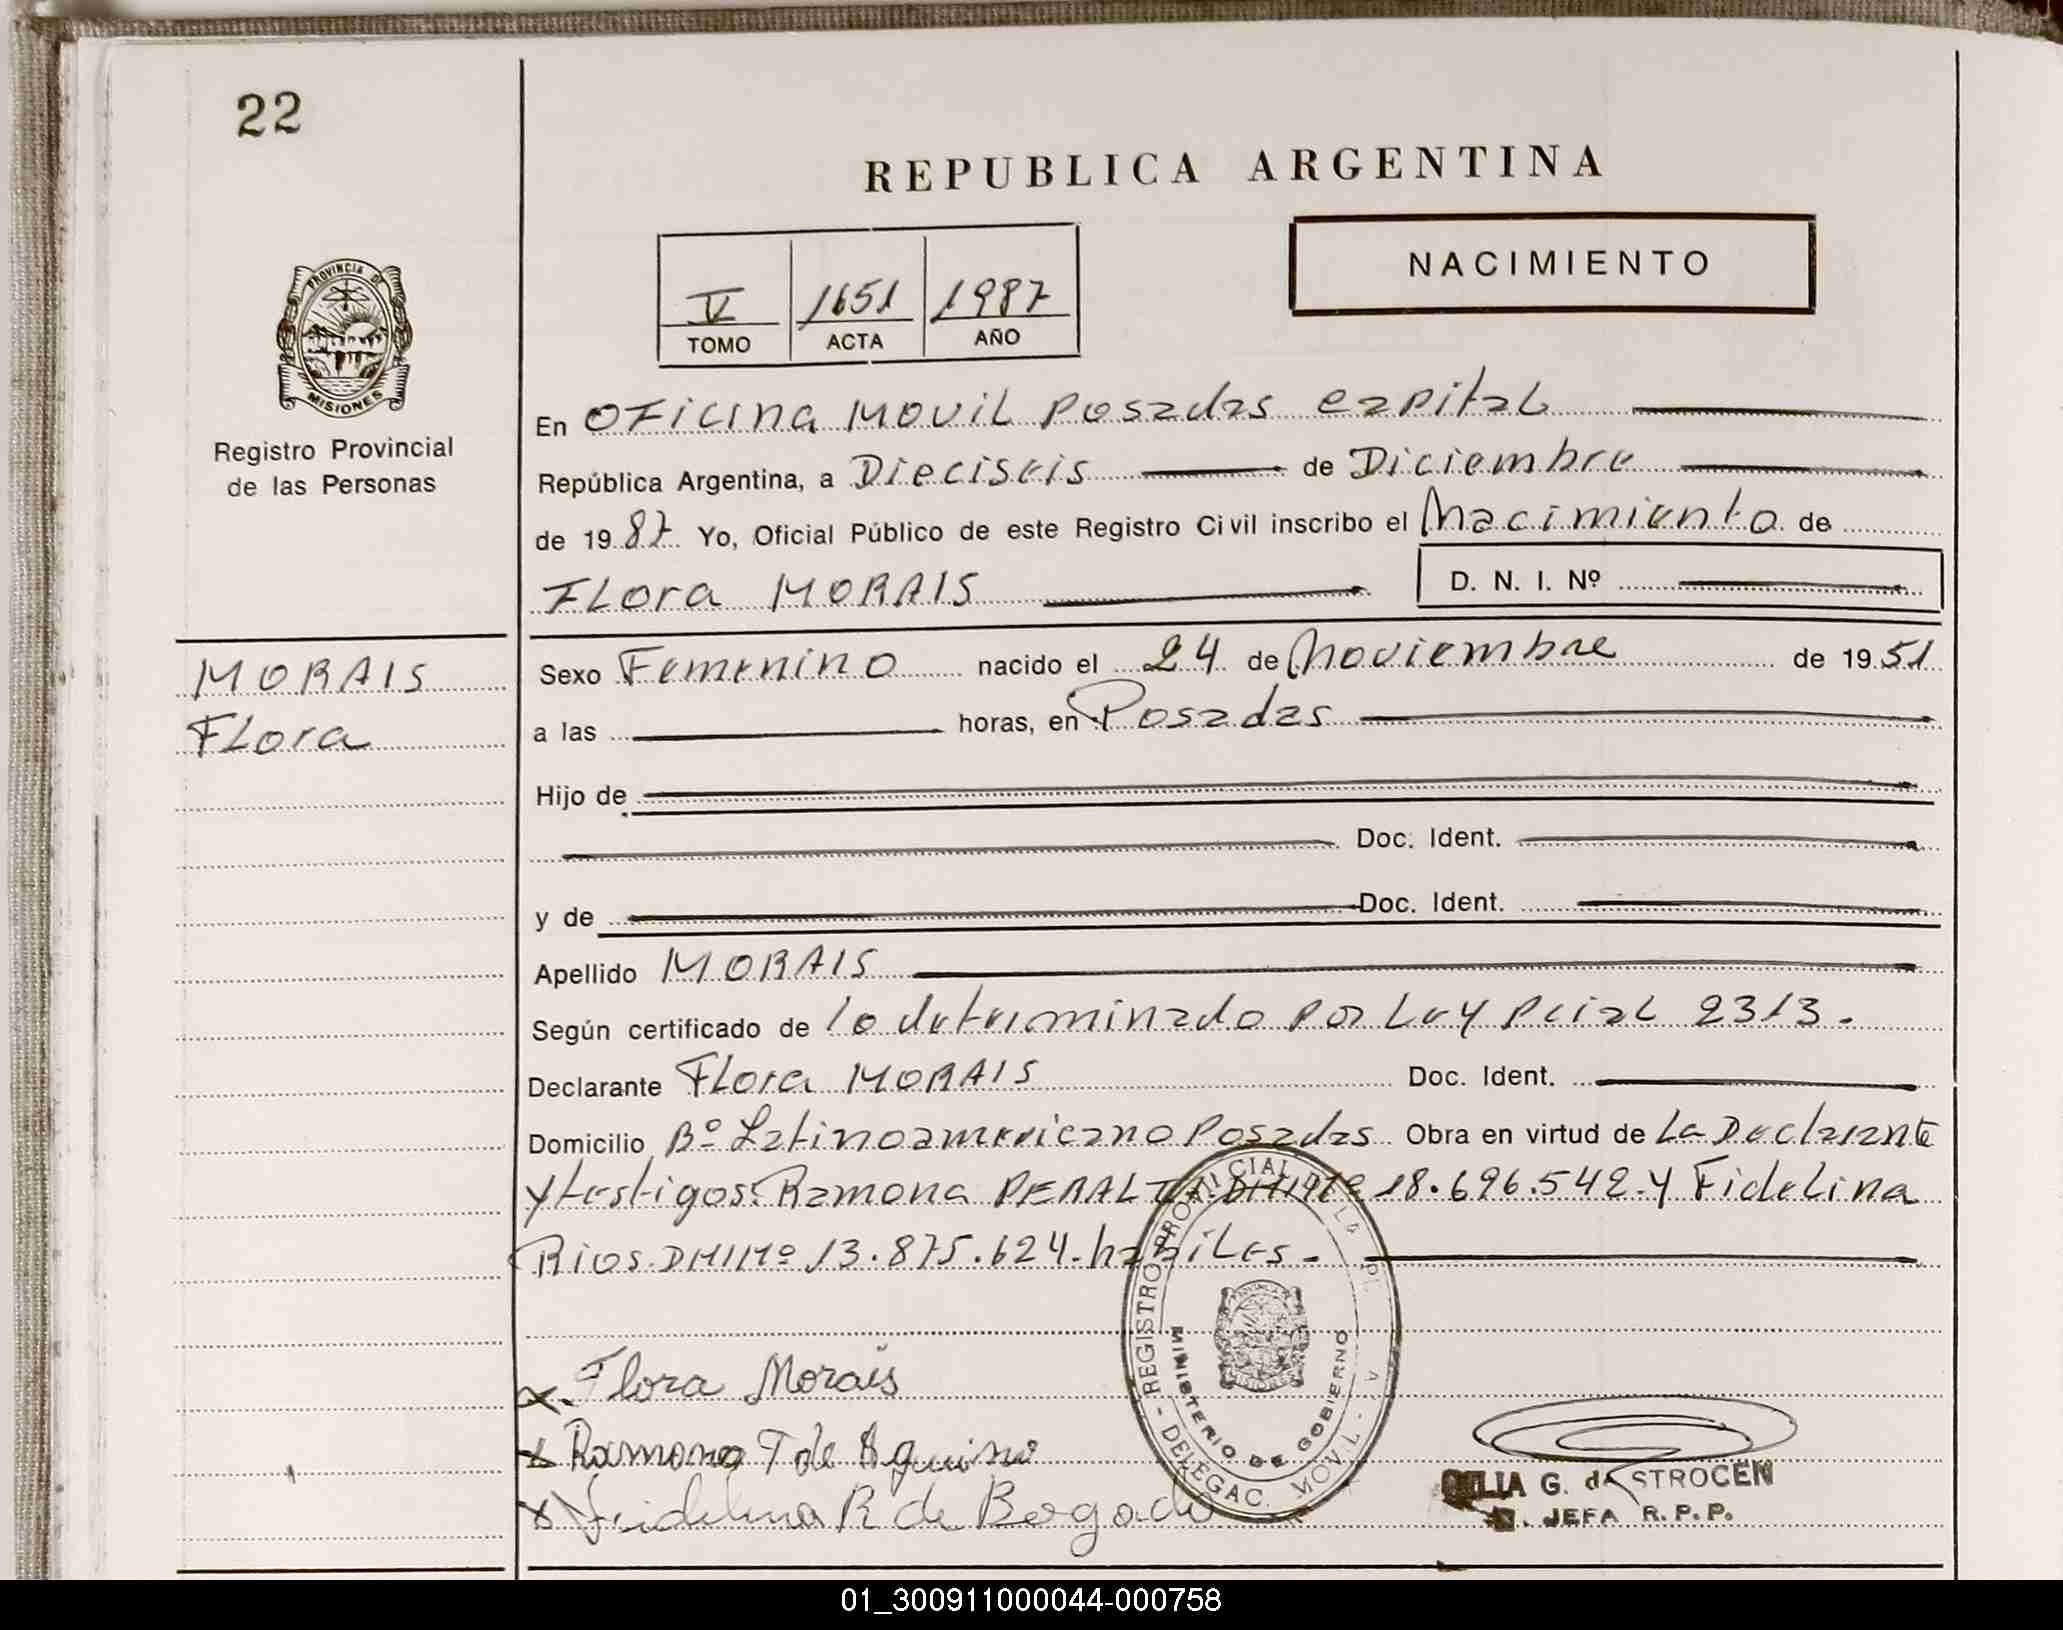 22
REPUBLICA ARGENTINA
NACIMIENTO
V 1651 1987
TOMO ACTA AÑO
PROVINCIA DE
MISIONES
Registro Provincial
de las Personas
En Oficina Movil Posadas Capital
República Argentina, a Dieciseis de Diciembre
de 1987 Yo, Oficial Público de este Registro Civil inscribo el Nacimiento de
Flora MORAIS D. N. I. Nº
MORAIS
Flora
Sexo Femenino nacido el 24 de Noviembre de 1951
a las horas, en Posadas
Hijo de
Doc. Ident.
y de Doc. Ident.
Apellido MORAIS
Según certificado de lo determinado por Ley Pcial 2313.
Declarante Flora MORAIS Doc. Ident.
Domicilio Bº Latinoamericano Posadas Obra en virtud de La Declarante
y testigos: Ramona PERALTA DNINº 18.696.542. y Fidelina
Rios. DNINº 13.875.624. habiles.
x. Flora Morais
x Ramona T de Aquino
x Fidelina R de Bogado
REGISTRO PROVINCIAL DE LA
DELEGAC. MOVIL
MINISTERIO DE GOBIERNO
G. de STROCEN
JEFA R.P.P.
01_300911000044-000758